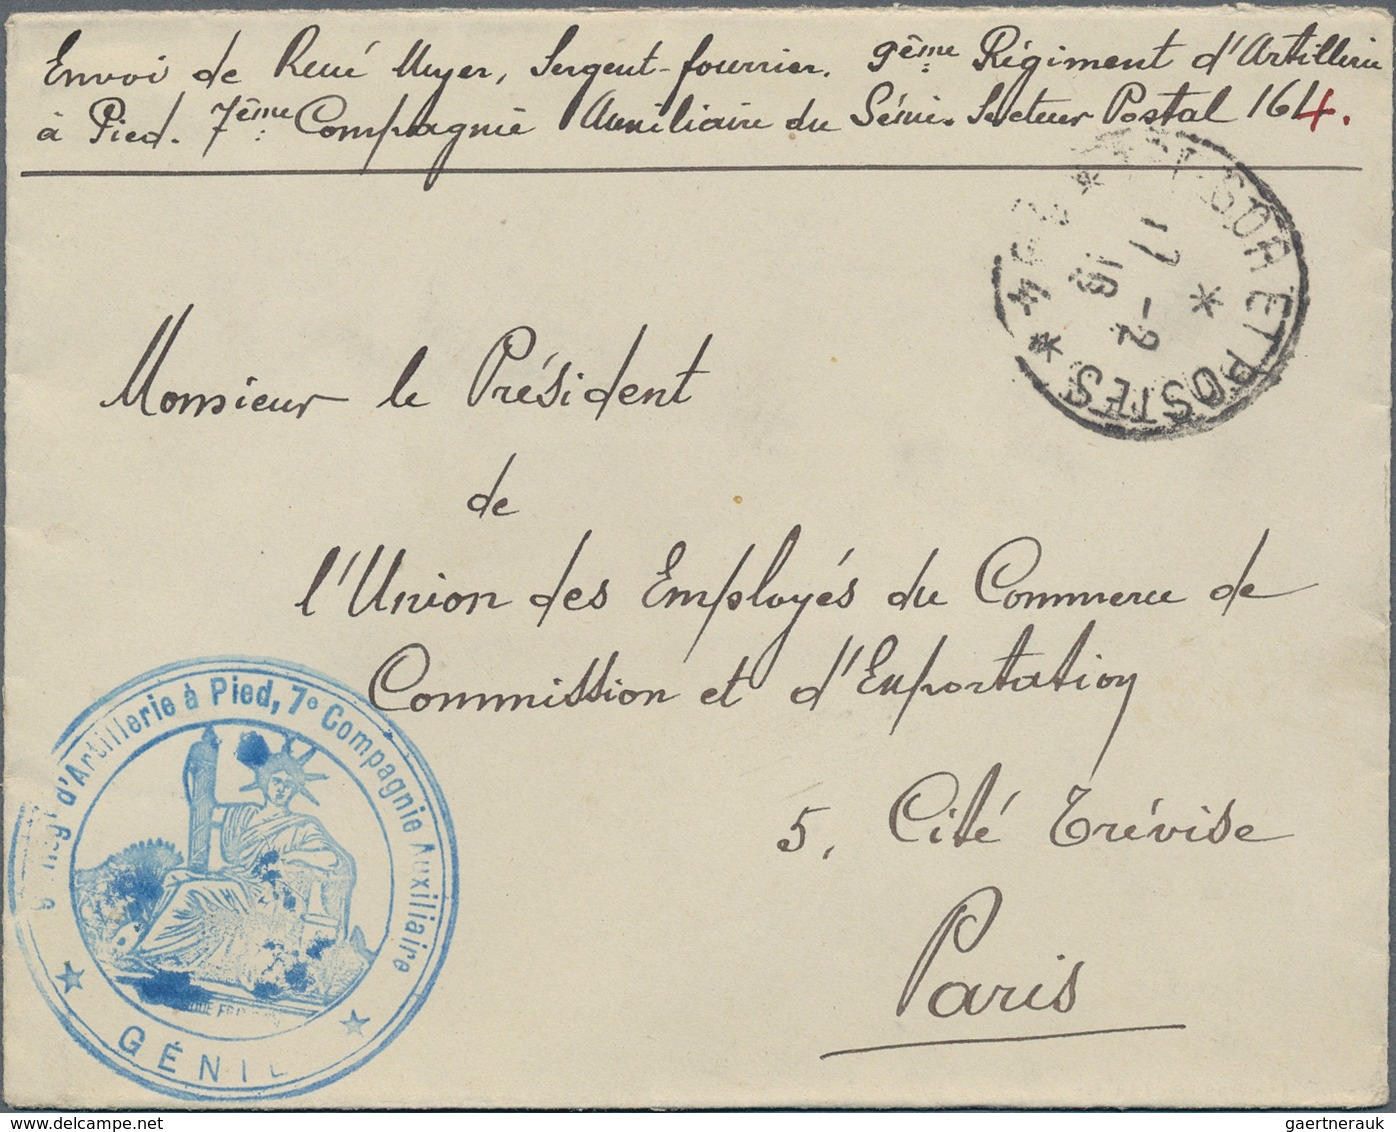 Envoi de René Meyer, Sergent-fourrier. 9ème Régiment d'Artillerie
à Pied. 7ème Compagnie Auxiliaire du Génie. Secteur Postal 164.
TRESOR ET POSTES
17 -2
16
Monsieur le Président
de
l'Union des Employés du Commerce de
Commission et d'Exportation
5, Cité Trévise
Paris
Regt d'Artillerie à Pied, 7e Compagnie Auxiliaire
GÉNIE
gaertnerauk ©